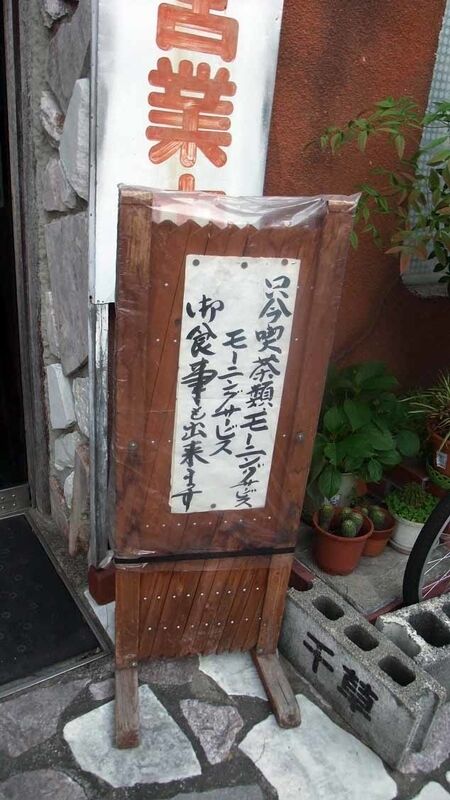 営業中
只今喫茶類モーニングサービス
モーニングサービス
御食事も出来ます
千草